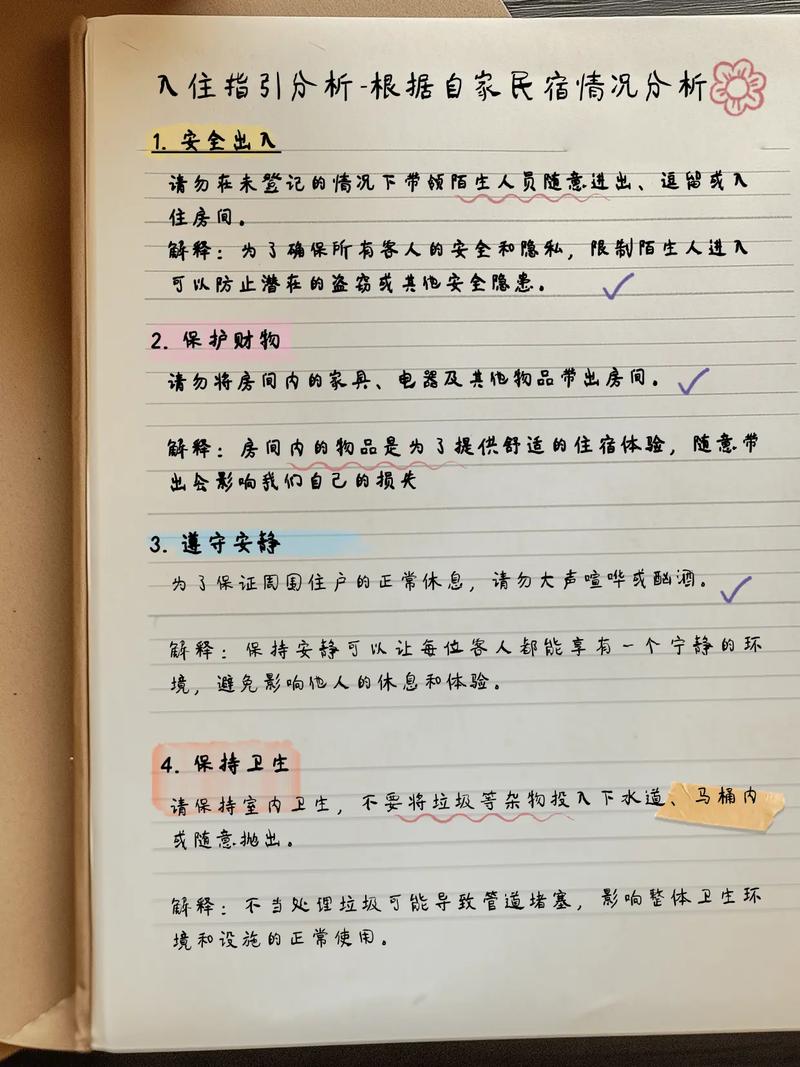 入住指引分析-根据自家民宿情况分析
1. 安全出入
请勿在未登记的情况下带领陌生人员随意进出、逗留或入
住房间。
解释：为了确保所有客人的安全和隐私，限制陌生人进入
可以防止潜在的盗窃或其他安全隐患。
2. 保护财物
请勿将房间内的家具、电器及其他物品带出房间。
解释：房间内的物品是为了提供舒适的住宿体验，随意带
出会影响我们自己的损失
3. 遵守安静
为了保证周围住户的正常休息，请勿大声喧哗或酗酒。
解释：保持安静可以让每位客人都能享有一个宁静的环
境，避免影响他人的休息和体验。
4. 保持卫生
请保持室内卫生，不要将垃圾等杂物投入下水道、马桶内
或随意抛出。
解释：不当处理垃圾可能导致管道堵塞，影响整体卫生环
境和设施的正常使用。